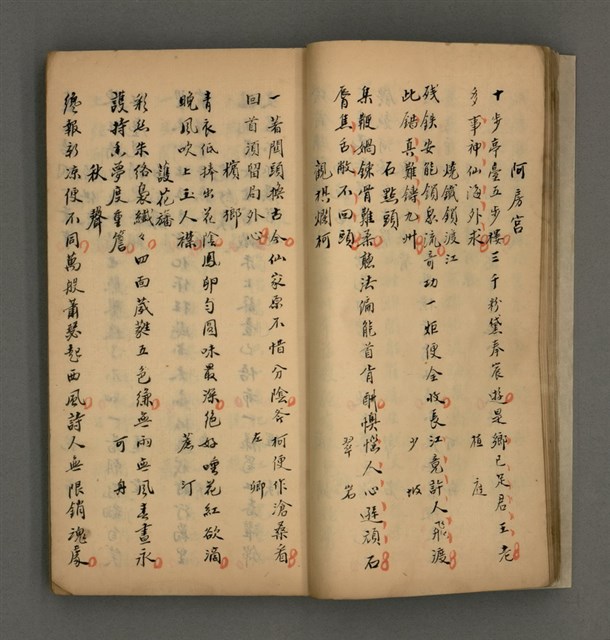 阿房宮
十步亭臺五步樓三千粉黛奉宸遊是鄉已足君王老
多事神仙海外求 植庭
燒鐵鎖渡江
殘鐵安能鎖急流奇功一炬便全收長江竟許人飛渡
此錯真難鑄九州 少坡
石點頭
集鞭媧鍊骨難柔慧法偏能首肯酬懊惱人心逾頑石
唇焦舌敝不回頭 翠岩
觀棋爛柯
一著關頭換古今仙家原不惜分陰斧柯便作滄桑看
回首須留局外心 左卿
檳榔
青衣低捧出花陰鳳卵勻圓味最深絕好唾花紅欲滴
晚風吹上玉人襟 蘆汀
護花旛
彩絲朱絡裊纖々四面葳蕤五色縑無雨無風春晝永
護持香夢度重簷 可舟
秋聲
纔報新涼便不同萬般蕭瑟起西風詩人無限銷魂處